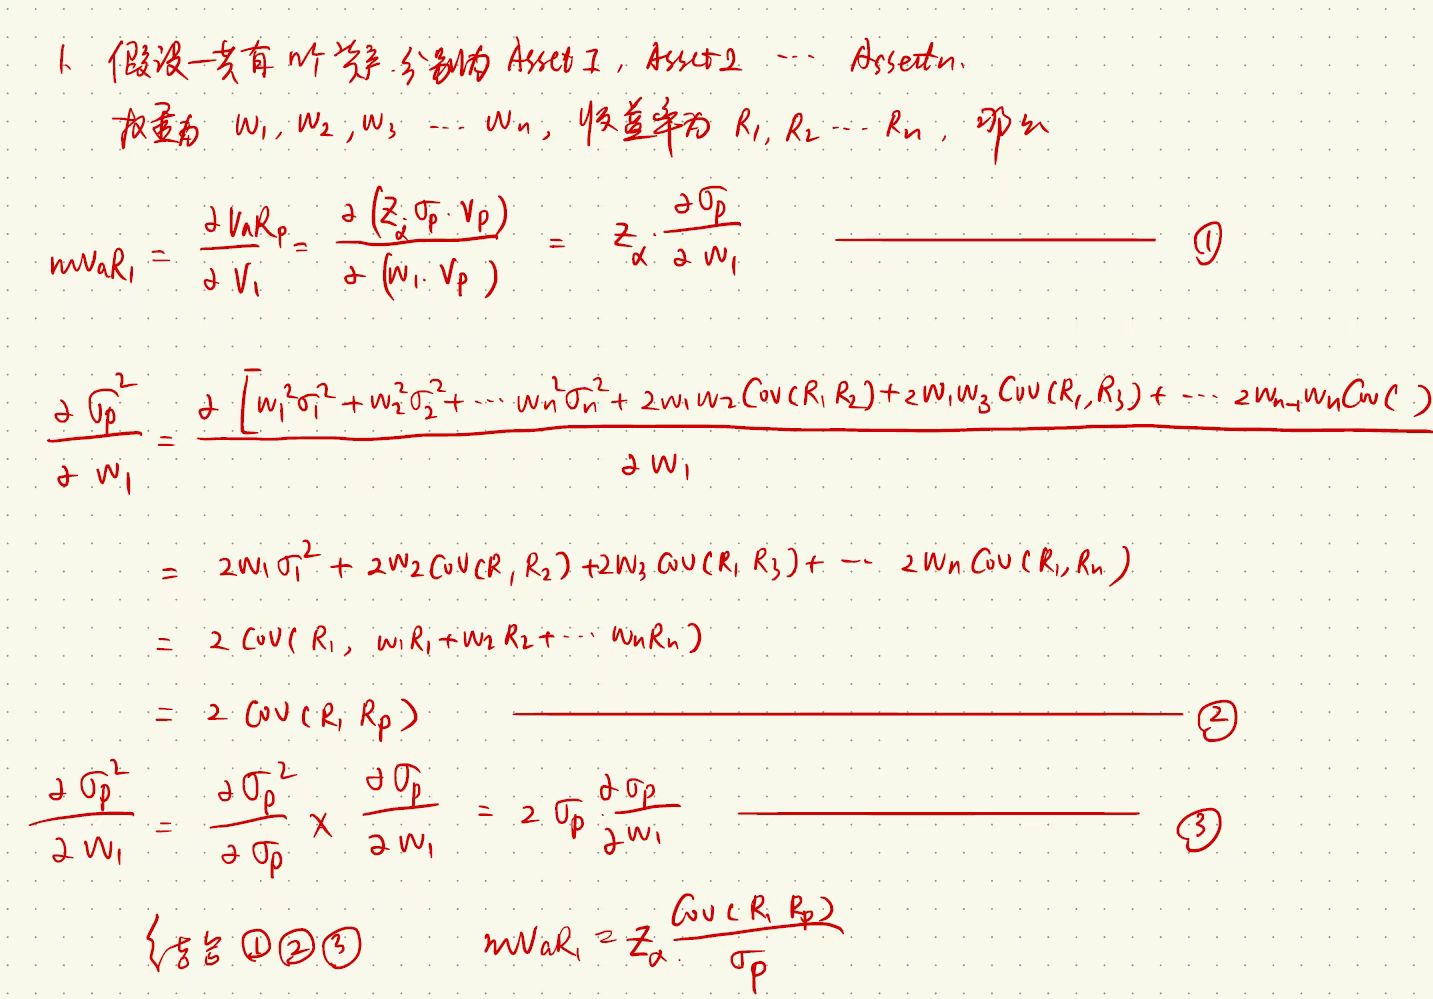 1. 假设一共有 n个资产.分别为 Asset 1, Asset 2 ... Asset n.
权重为 W₁, W₂, W₃ ... Wₙ, 收益率为 R₁, R₂ ... Rₙ. 那么
mVaR₁ = ∂VaRₚ/∂V₁ = ∂(Z_α σₚ·Vₚ)/∂(W₁·Vₚ) = Z_α·∂σₚ/∂W₁ ——— ①
∂σₚ²/∂W₁ = ∂[W₁²σ₁² + W₂²σ₂² + ... Wₙ²σₙ² + 2W₁W₂Cov(R₁R₂) + 2W₁W₃Cov(R₁,R₃) + ... 2Wₙ₋₁WₙCov( )/∂W₁
= 2W₁σ₁² + 2W₂Cov(R₁R₂) + 2W₃Cov(R₁R₃) + ... 2WₙCov(R₁,Rₙ)
= 2Cov(R₁, W₁R₁ + W₂R₂ + ... WₙRₙ)
= 2Cov(R₁Rₚ) ——— ②
∂σₚ²/∂W₁ = ∂σₚ²/∂σₚ × ∂σₚ/∂W₁ = 2σₚ·∂σₚ/∂W₁ ——— ③
结合①②③ mVaR₁ = Z_α·Cov(R₁Rₚ)/σₚ